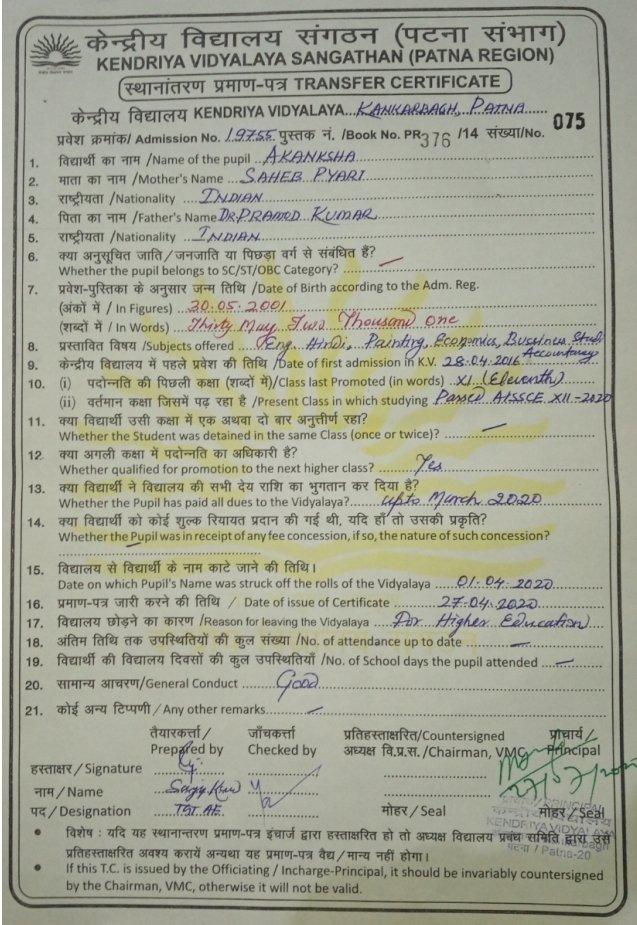 केन्द्रीय विद्यालय संगठन (पटना संभाग)
KENDRIYA VIDYALAYA SANGATHAN (PATNA REGION)
स्थानांतरण प्रमाण-पत्र TRANSFER CERTIFICATE
केन्द्रीय विद्यालय KENDRIYA VIDYALAYA KANKARBAGH, PATNA
075
प्रवेश क्रमांक/ Admission No. 19755 पुस्तक नं. /Book No. PR 376 /14 संख्या/No.
1. विद्यार्थी का नाम /Name of the pupil AKANKSHA
2. माता का नाम /Mother's Name SAHEB PYARI
3. राष्ट्रीयता /Nationality INDIAN
4. पिता का नाम /Father's Name DR. PRAMOD KUMAR
5. राष्ट्रीयता /Nationality INDIAN
6. क्या अनुसूचित जाति / जनजाति या पिछड़ा वर्ग से संबंधित हैं?
Whether the pupil belongs to SC/ST/OBC Category? —
7. प्रवेश-पुस्तिका के अनुसार जन्म तिथि /Date of Birth according to the Adm. Reg.
(अंकों में / In Figures) 30.05.2001
(शब्दों में / In Words) Thirty May Two Thousand One
8. प्रस्तावित विषय /Subjects offered Eng. Hindi, Painting, Economics, Bussiness Stud.
Accountancy
9. केन्द्रीय विद्यालय में पहले प्रवेश की तिथि /Date of first admission in K.V. 28.04.2016
10. (i) पदोन्नति की पिछली कक्षा (शब्दों में)/Class last Promoted (in words) XI (Eleventh)
(ii) वर्तमान कक्षा जिसमें पढ़ रहा है /Present Class in which studying Passed AISSCE XII-2020
11. क्या विद्यार्थी उसी कक्षा में एक अथवा दो बार अनुत्तीर्ण रहा?
Whether the Student was detained in the same Class (once or twice)? —
12. क्या अगली कक्षा में पदोन्नति का अधिकारी है?
Whether qualified for promotion to the next higher class? Yes
13. क्या विद्यार्थी ने विद्यालय की सभी देय राशि का भुगतान कर दिया है?
Whether the Pupil has paid all dues to the Vidyalaya? upto March 2020
14. क्या विद्यार्थी को कोई शुल्क रियायत प्रदान की गई थी, यदि हाँ तो उसकी प्रकृति?
Whether the Pupil was in receipt of any fee concession, if so, the nature of such concession?
15. विद्यालय से विद्यार्थी के नाम काटे जाने की तिथि।
Date on which Pupil's Name was struck off the rolls of the Vidyalaya 01.04.2020
16. प्रमाण-पत्र जारी करने की तिथि / Date of issue of Certificate 27.04.2020
17. विद्यालय छोड़ने का कारण /Reason for leaving the Vidyalaya For Higher Education
18. अंतिम तिथि तक उपस्थितियों की कुल संख्या /No. of attendance up to date —
19. विद्यार्थी की विद्यालय दिवसों की कुल उपस्थितियाँ /No. of School days the pupil attended —
20. सामान्य आचरण/General Conduct Good
21. कोई अन्य टिप्पणी / Any other remarks —
तैयारकर्त्ता / जाँचकर्त्ता प्रतिहस्ताक्षरित/Countersigned प्राचार्य/
Prepared by Checked by अध्यक्ष वि.प्र.स. /Chairman, VMC Principal
हस्ताक्षर / Signature
नाम / Name
पद / Designation TGT. AE. मोहर / Seal मोहर / Seal
PRINCIPAL
KENDRIYA VIDYALAYA
पटना / Patna-20
• विशेष : यदि यह स्थानान्तरण प्रमाण-पत्र इंचार्ज द्वारा हस्ताक्षरित हो तो अध्यक्ष विद्यालय प्रबंध समिति द्वारा उसे
प्रतिहस्ताक्षरित अवश्य करायें अन्यथा यह प्रमाण-पत्र वैद्य / मान्य नहीं होगा।
• If this T.C. is issued by the Officiating / Incharge-Principal, it should be invariably countersigned
by the Chairman, VMC, otherwise it will not be valid.